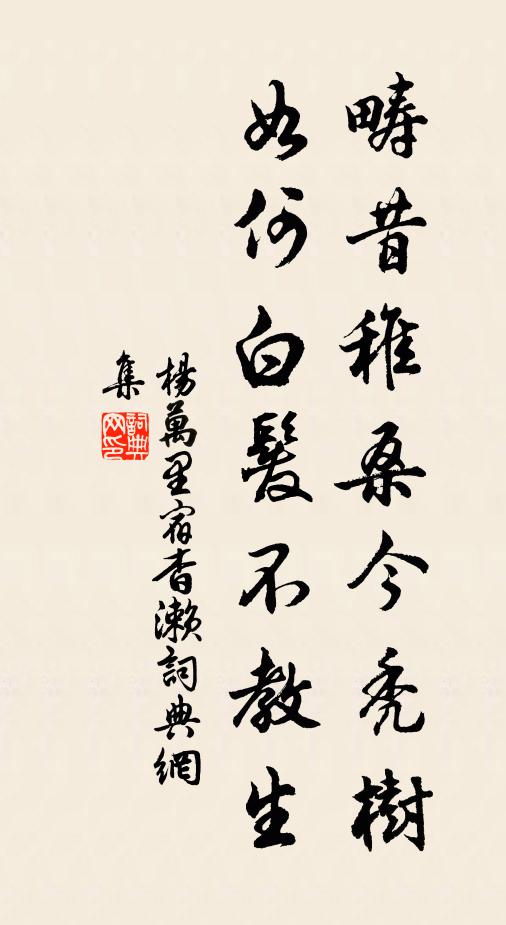 疇昔稚桑今禿樹
如何白髮不教生
楊萬里宿杳瀨詞典網
集
詞典
网印